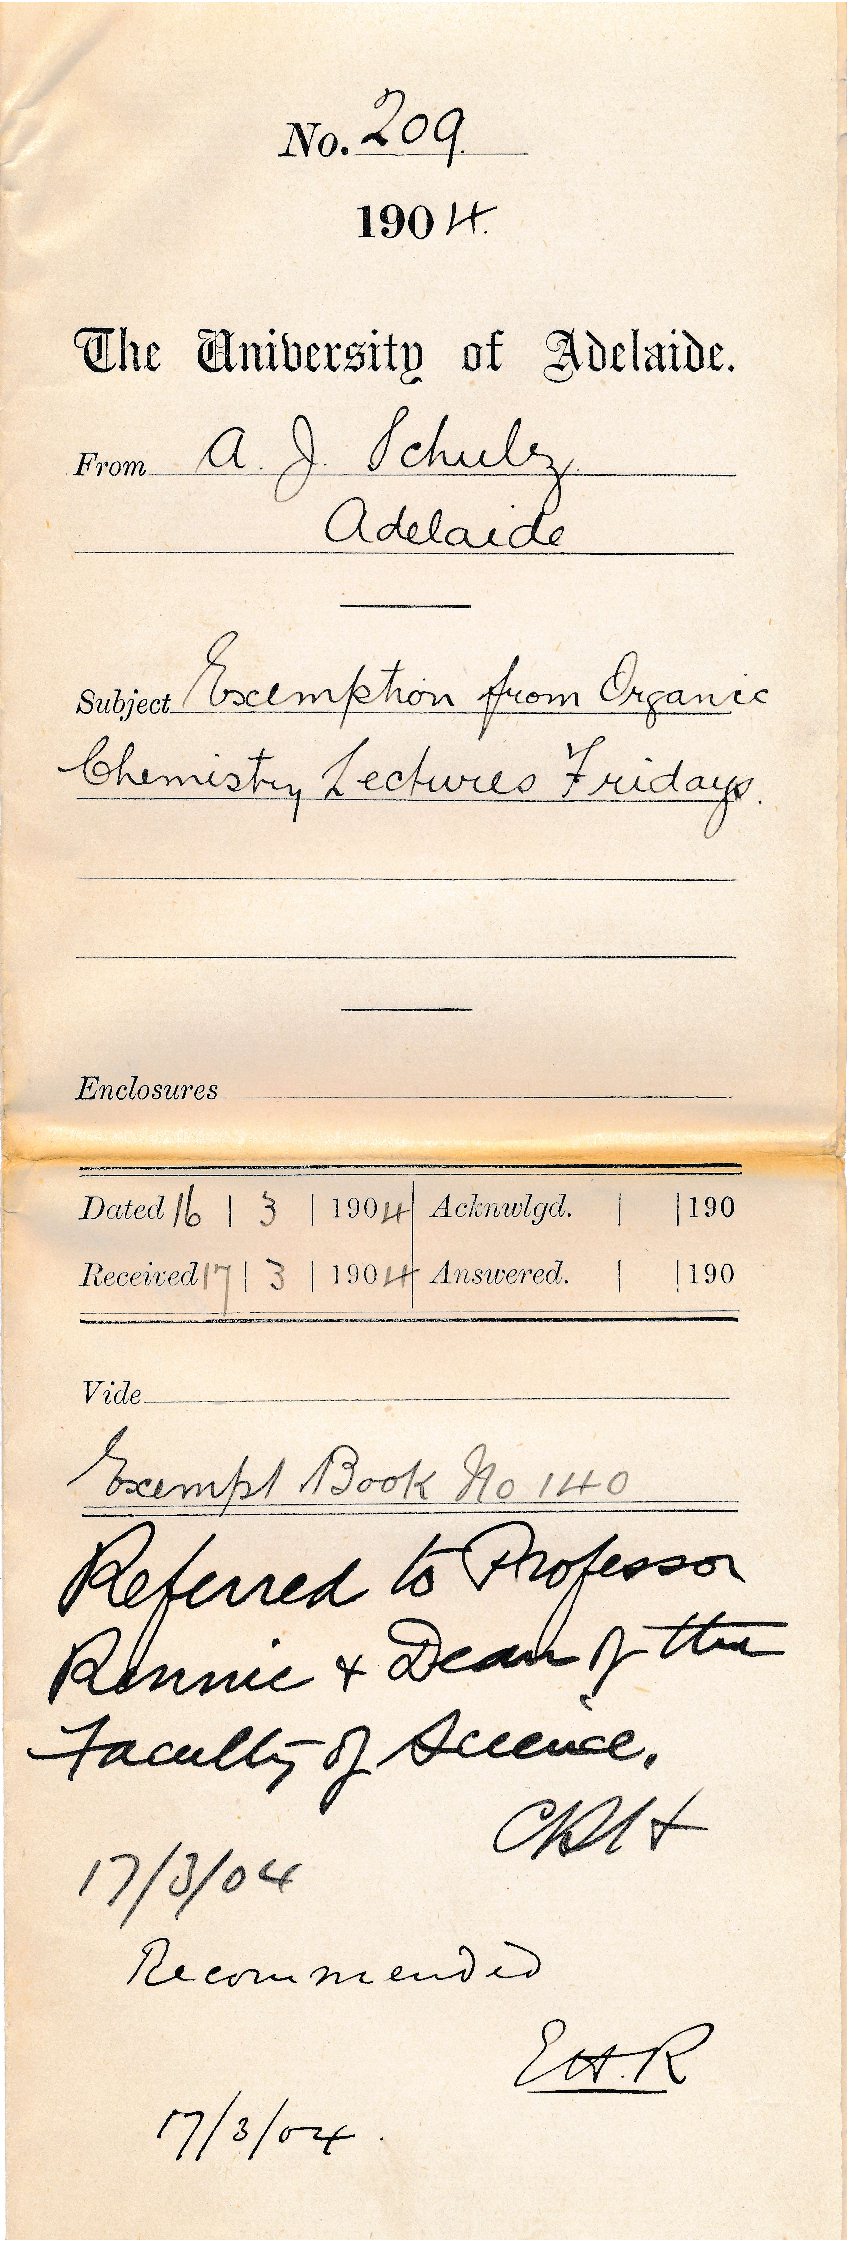 No. 209.
1904.
The University of Adelaide.
From A. J. Schulz.
Adelaide
Subject Exemption from Organic
Chemistry Lectures Fridays.
Enclosures
Dated 16 | 3 | 1904 Acknwlgd. | | 190
Received 17 | 3 | 1904 Answered. | | 190
Vide
Exempt Book No 140
Referred to Professor
Rennie + Dean of the
Faculty of Science.
17/3/04
Recommended
E.H.R
17/3/04.